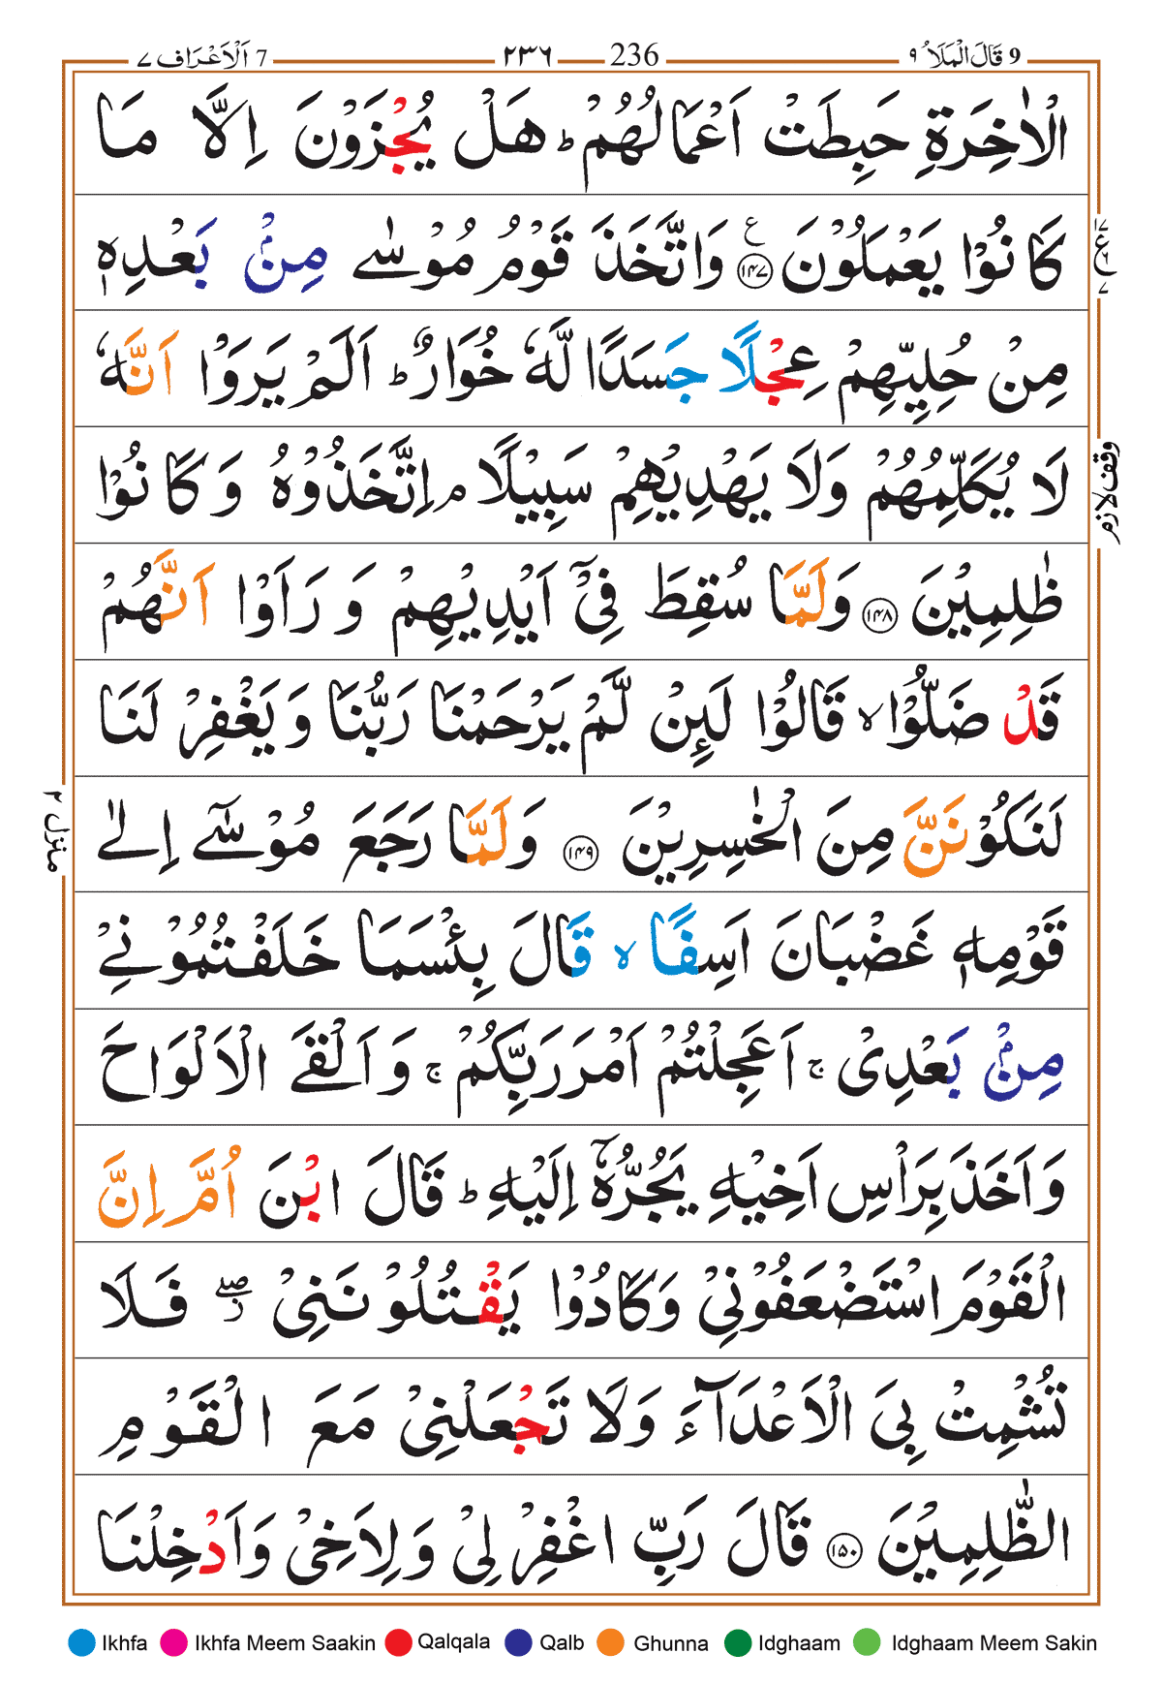 9 قَالَ الْمَلَاُ ٩ 236 ٢٣٦ 7 اَلْاَعْرَاف ٧
الْاٰخِرَةِ حَبِطَتْ اَعْمَالُهُمْ ؕ هَلْ يُجْزَوْنَ اِلَّا مَا
كَانُوْا يَعْمَلُوْنَ ﴿١٤٧﴾ ع وَاتَّخَذَ قَوْمُ مُوْسٰى مِنْۢ بَعْدِهٖ
مِنْ حُلِيِّهِمْ عِجْلًا جَسَدًا لَّهٗ خُوَارٌ ؕ اَلَمْ يَرَوْا اَنَّهٗ
لَا يُكَلِّمُهُمْ وَلَا يَهْدِيْهِمْ سَبِيْلًا ۘ اِتَّخَذُوْهُ وَكَانُوْا
ظٰلِمِيْنَ ﴿١٤٨﴾ وَلَمَّا سُقِطَ فِىْۤ اَيْدِيْهِمْ وَ رَاَوْا اَنَّهُمْ
قَدْ ضَلُّوْا ۙ قَالُوْا لَئِنْ لَّمْ يَرْحَمْنَا رَبُّنَا وَيَغْفِرْ لَنَا
لَنَكُوْنَنَّ مِنَ الْخٰسِرِيْنَ ﴿١٤٩﴾ وَلَمَّا رَجَعَ مُوْسٰۤى اِلٰى
قَوْمِهٖ غَضْبَانَ اَسِفًا ۙ قَالَ بِئْسَمَا خَلَفْتُمُوْنِىْ
مِنْۢ بَعْدِىْ ۚ اَعَجِلْتُمْ اَمْرَ رَبِّكُمْ ۚ وَاَلْقَى الْاَلْوَاحَ
وَاَخَذَ بِرَاْسِ اَخِيْهِ يَجُرُّهٗۤ اِلَيْهِ ؕ قَالَ ابْنَ اُمَّ اِنَّ
الْقَوْمَ اسْتَضْعَفُوْنِىْ وَكَادُوْا يَقْتُلُوْنَنِىْ ۖ فَلَا
تُشْمِتْ بِىَ الْاَعْدَآءَ وَلَا تَجْعَلْنِىْ مَعَ الْقَوْمِ
الظّٰلِمِيْنَ ﴿١٥٠﴾ قَالَ رَبِّ اغْفِرْ لِىْ وَلِاَخِىْ وَاَدْخِلْنَا
وقف لازم
منزل ٢
Ikhfa Ikhfa Meem Saakin Qalqala Qalb Ghunna Idghaam Idghaam Meem Sakin